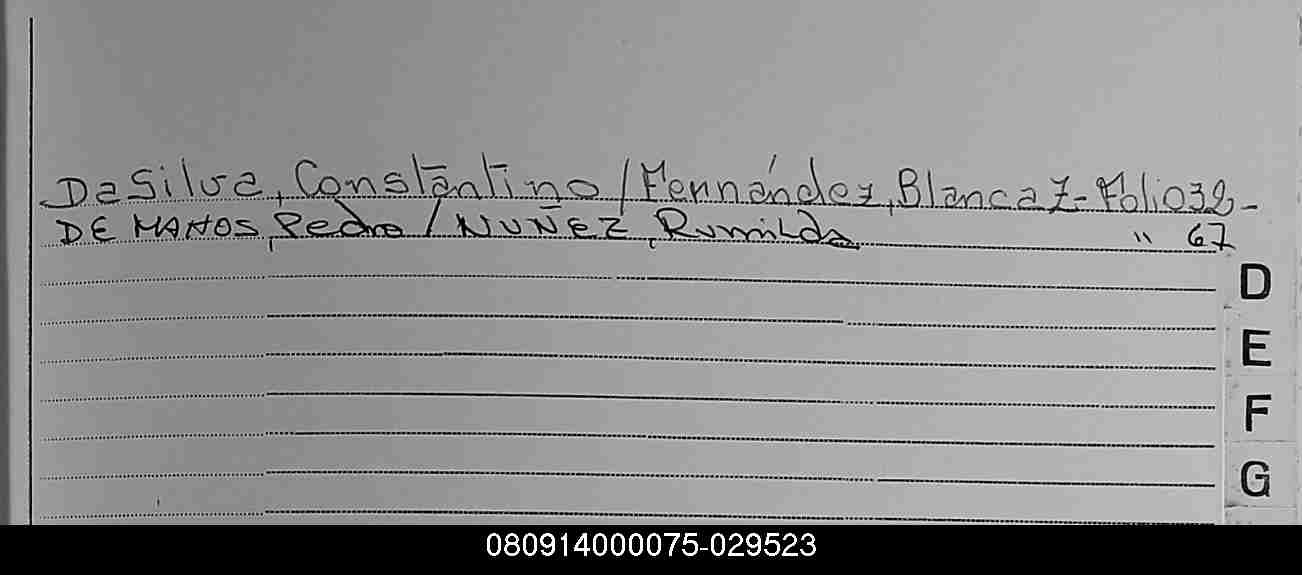 Da Silva, Constantino / Fernández, Blanca Z - Folio 32 -
DE MATTOS, Pedro / NUÑEZ, Rumilda " 67
D
E
F
G
080914000075-029523